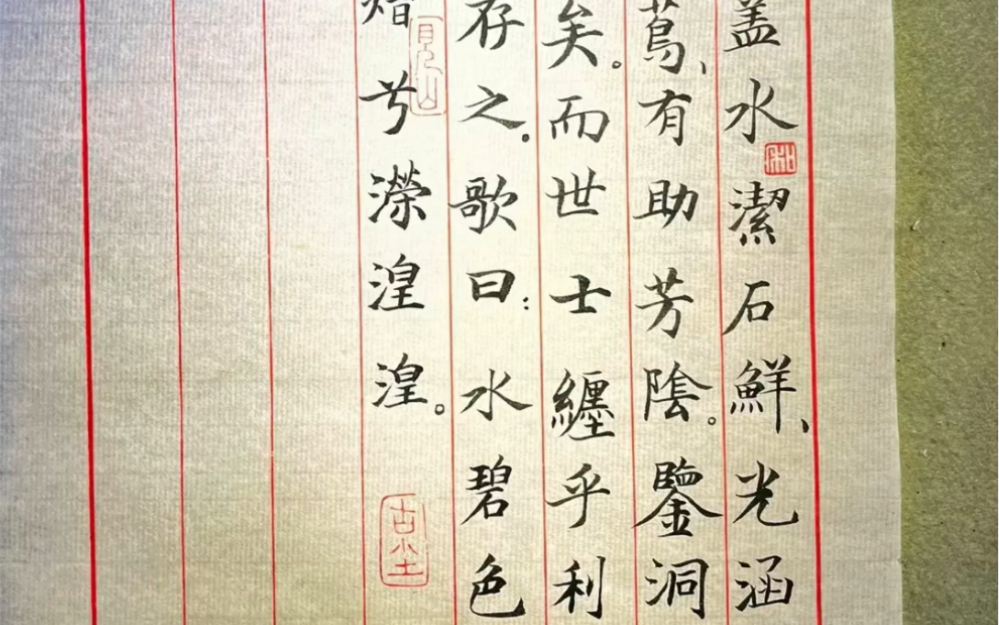 盖水潔石鮮、光涵
蔦、有助芳陰。鑒洞
矣。而世士纏乎利
存之。歌曰：水碧色
熠兮濚湟湟。
見山